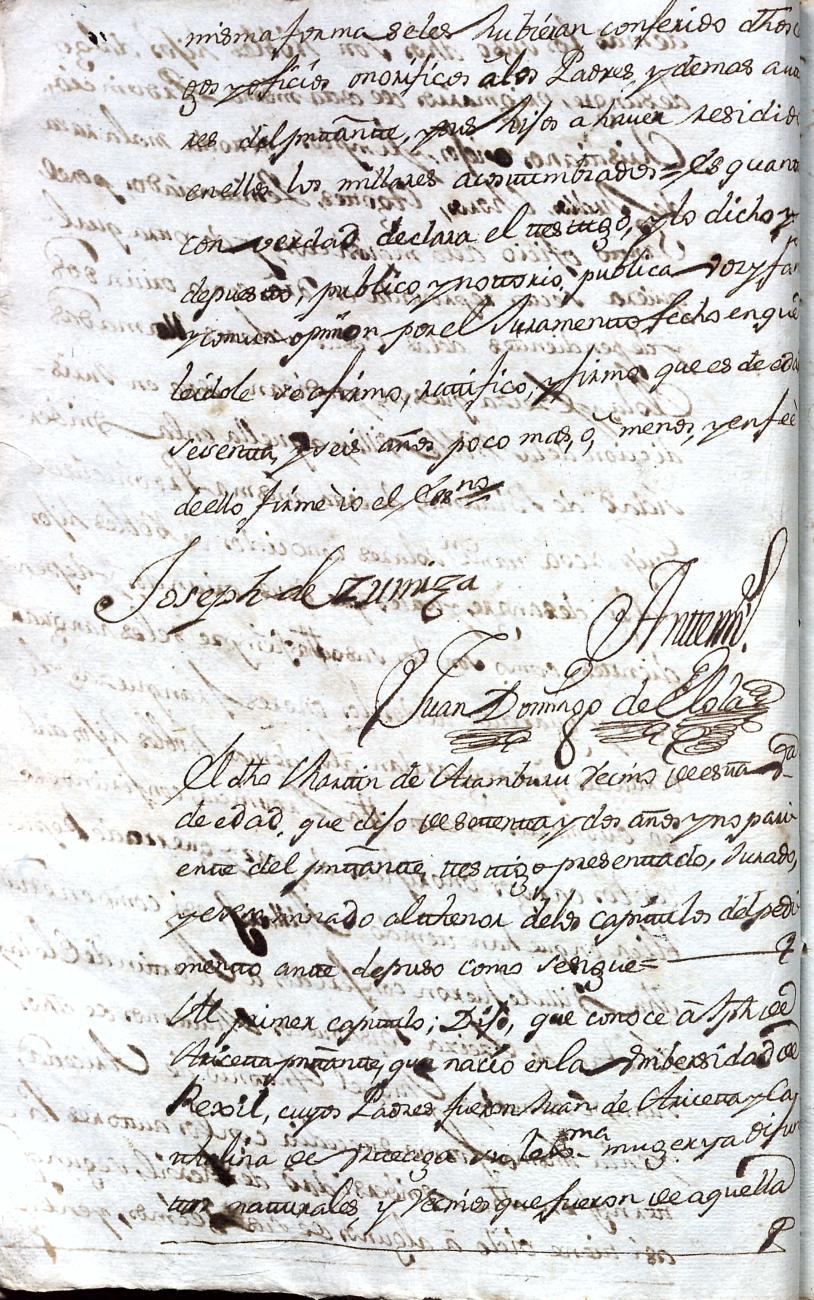 misma forma se les hubieran conferido dhos c
gos y oficios onorificos â los Padres, y demas a
res del prttante, y sus hijos a haver residido
en ellos los millares acostumbrados = Es quanto
con verdad declara el testigo, y lo dicho y
depuesto, publico, y nottorio, publica voz y fa
y comun opinion por el Juramento fecho en que
leidole se afirmo, ratifico, y firmo que es de eda
y seis años poco mas, o, menos, y en feè
de ello firmè io el Essno
Joseph de Ezumiza
Antemi
Juan Domingo de Elola
El dho Martin de Aramburu Vecino de esta
de edad, que dijo de settentta y dos años y no pari
ente del prttante, testtigo presenttado, Jurado,
y examinado al thenor de los capitulos del pedi
mento ante depuso como se sigue =
Al primer capitulo; Dijo, que conoce â Jph de
Aricetta prttante, que nacio en la Unibersidad de
Rexil, cuyos Padres fueron Juan de Aricetta y Ca
thalina de su lexma muger ya difun
tos naturales, y Vecinos que fueron de aquella